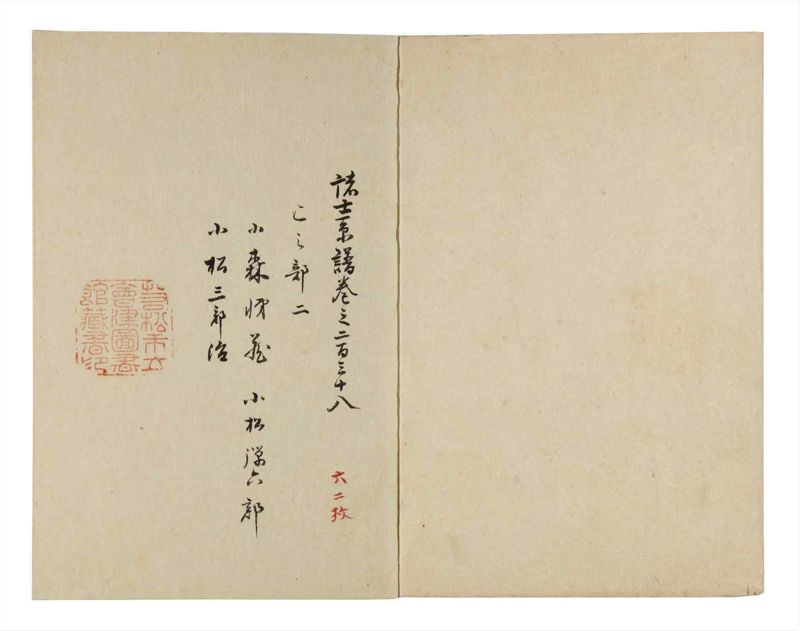 諸士系譜巻之二百三十八
六二枚
こ之部二
小森 小松弾六郎
小松三郎治
若松市立
會津圖書
館藏書印